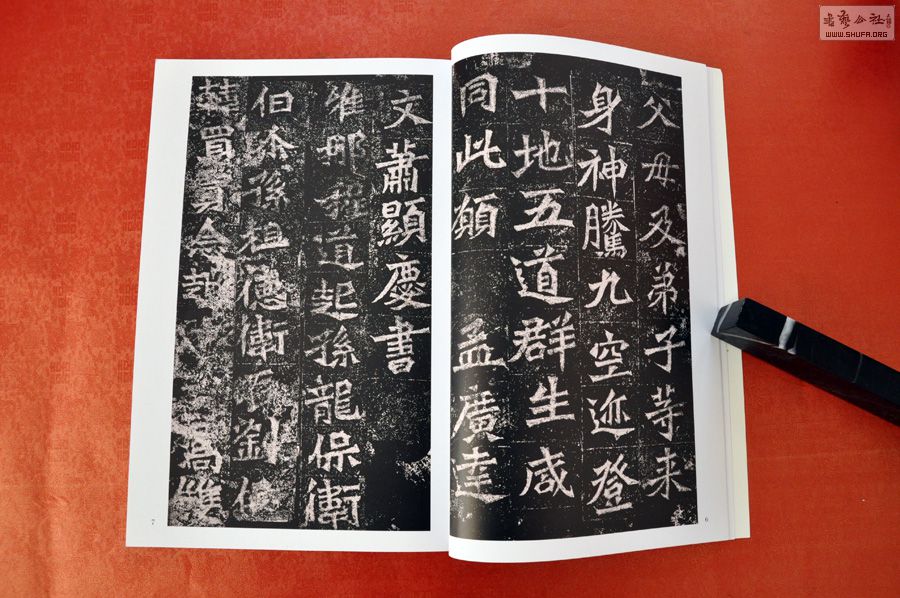 父母及弟子等来
身神騰九空迹登
十地五道群生咸
同此願 孟廣達
文蕭顯慶書
唯那程道起孫龍保衛
伯 孫祖德衛 劉
賈 念起 高雙
6
7
書藝公社
WWW.SHUFA.ORG